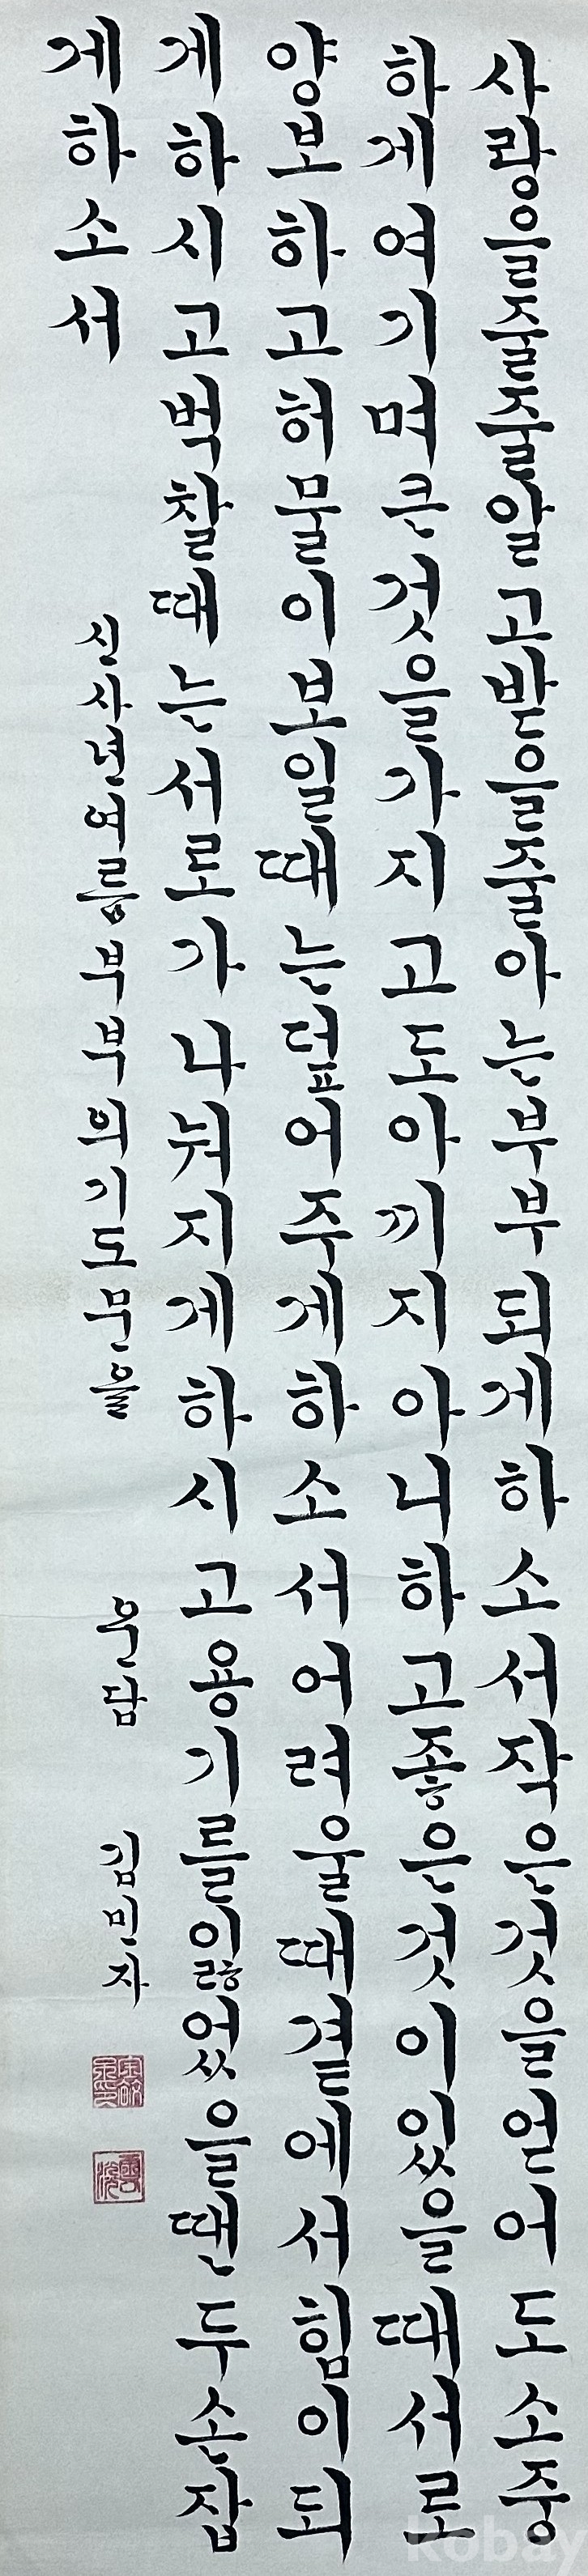 사랑을줄줄알고받을줄아는부부되게하소서작은것을얻어도소중
하게여기며큰것을가지고도아끼지아니하고좋은것이있을때서로
양보하고허물이보일때는덮어주게하소서어려울때곁에서힘이되
게하시고벅찰때는서로가나눠지게하시고용기를잃었을땐두손잡
게하소서
신사년여름부부의기도문을
운담
김민자
kobay